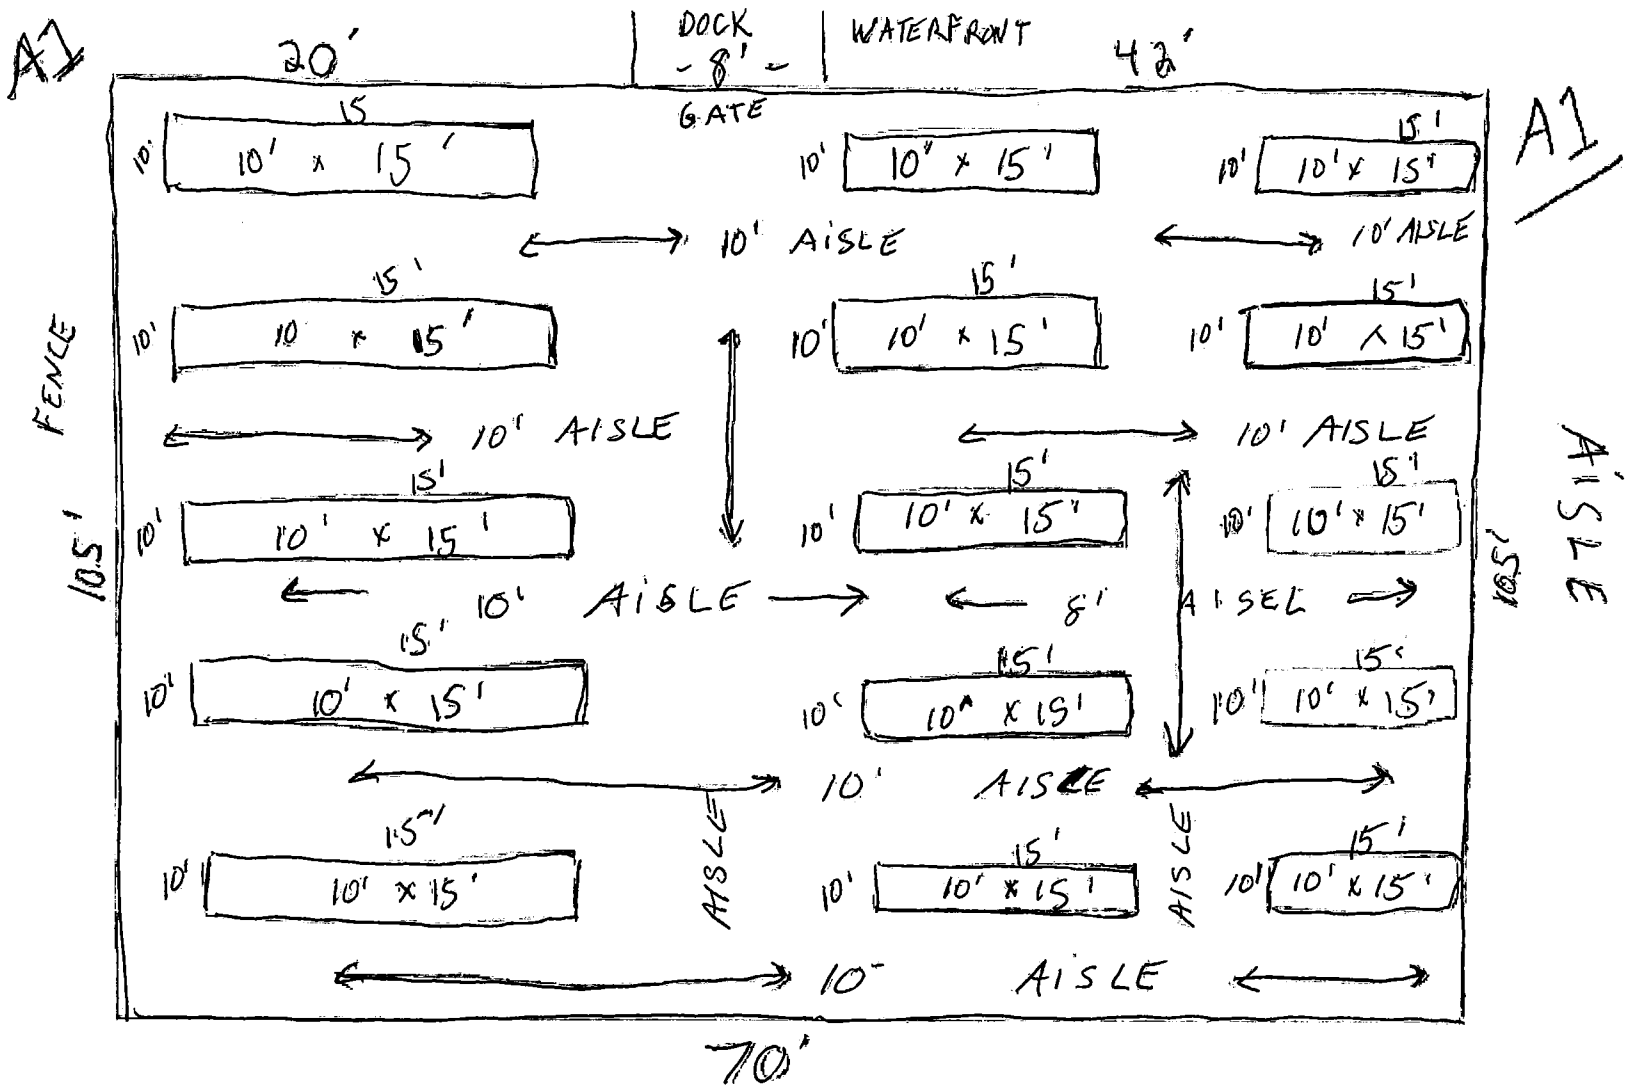 A1
20'
DOCK
- 8' -
WATERFRONT
42'
GATE
A1
15
15'
10'
10' x 15'
10'
10" x 15'
10'
10' x 15'
10' AiSLE
10' AISLE
15'
15'
15'
10'
10 x 15'
10'
10' x 15'
10'
10' x 15'
FENCE
10' AISLE
10' AISLE
AiSLE
15'
15'
15'
10'
10' x 15'
10'
10' x 15"
10'
10' x 15'
105'
105'
10' AiSLE
8' AISEL
15'
15'
15'
10'
10' x 15'
10'
10" x 15'
10'
10' x 15'
10' AISLE
AISLE
AISLE
15"
15'
15'
10'
10' x 15'
10'
10' x 15'
10'
10' x 15'
10- AiSLE
70'